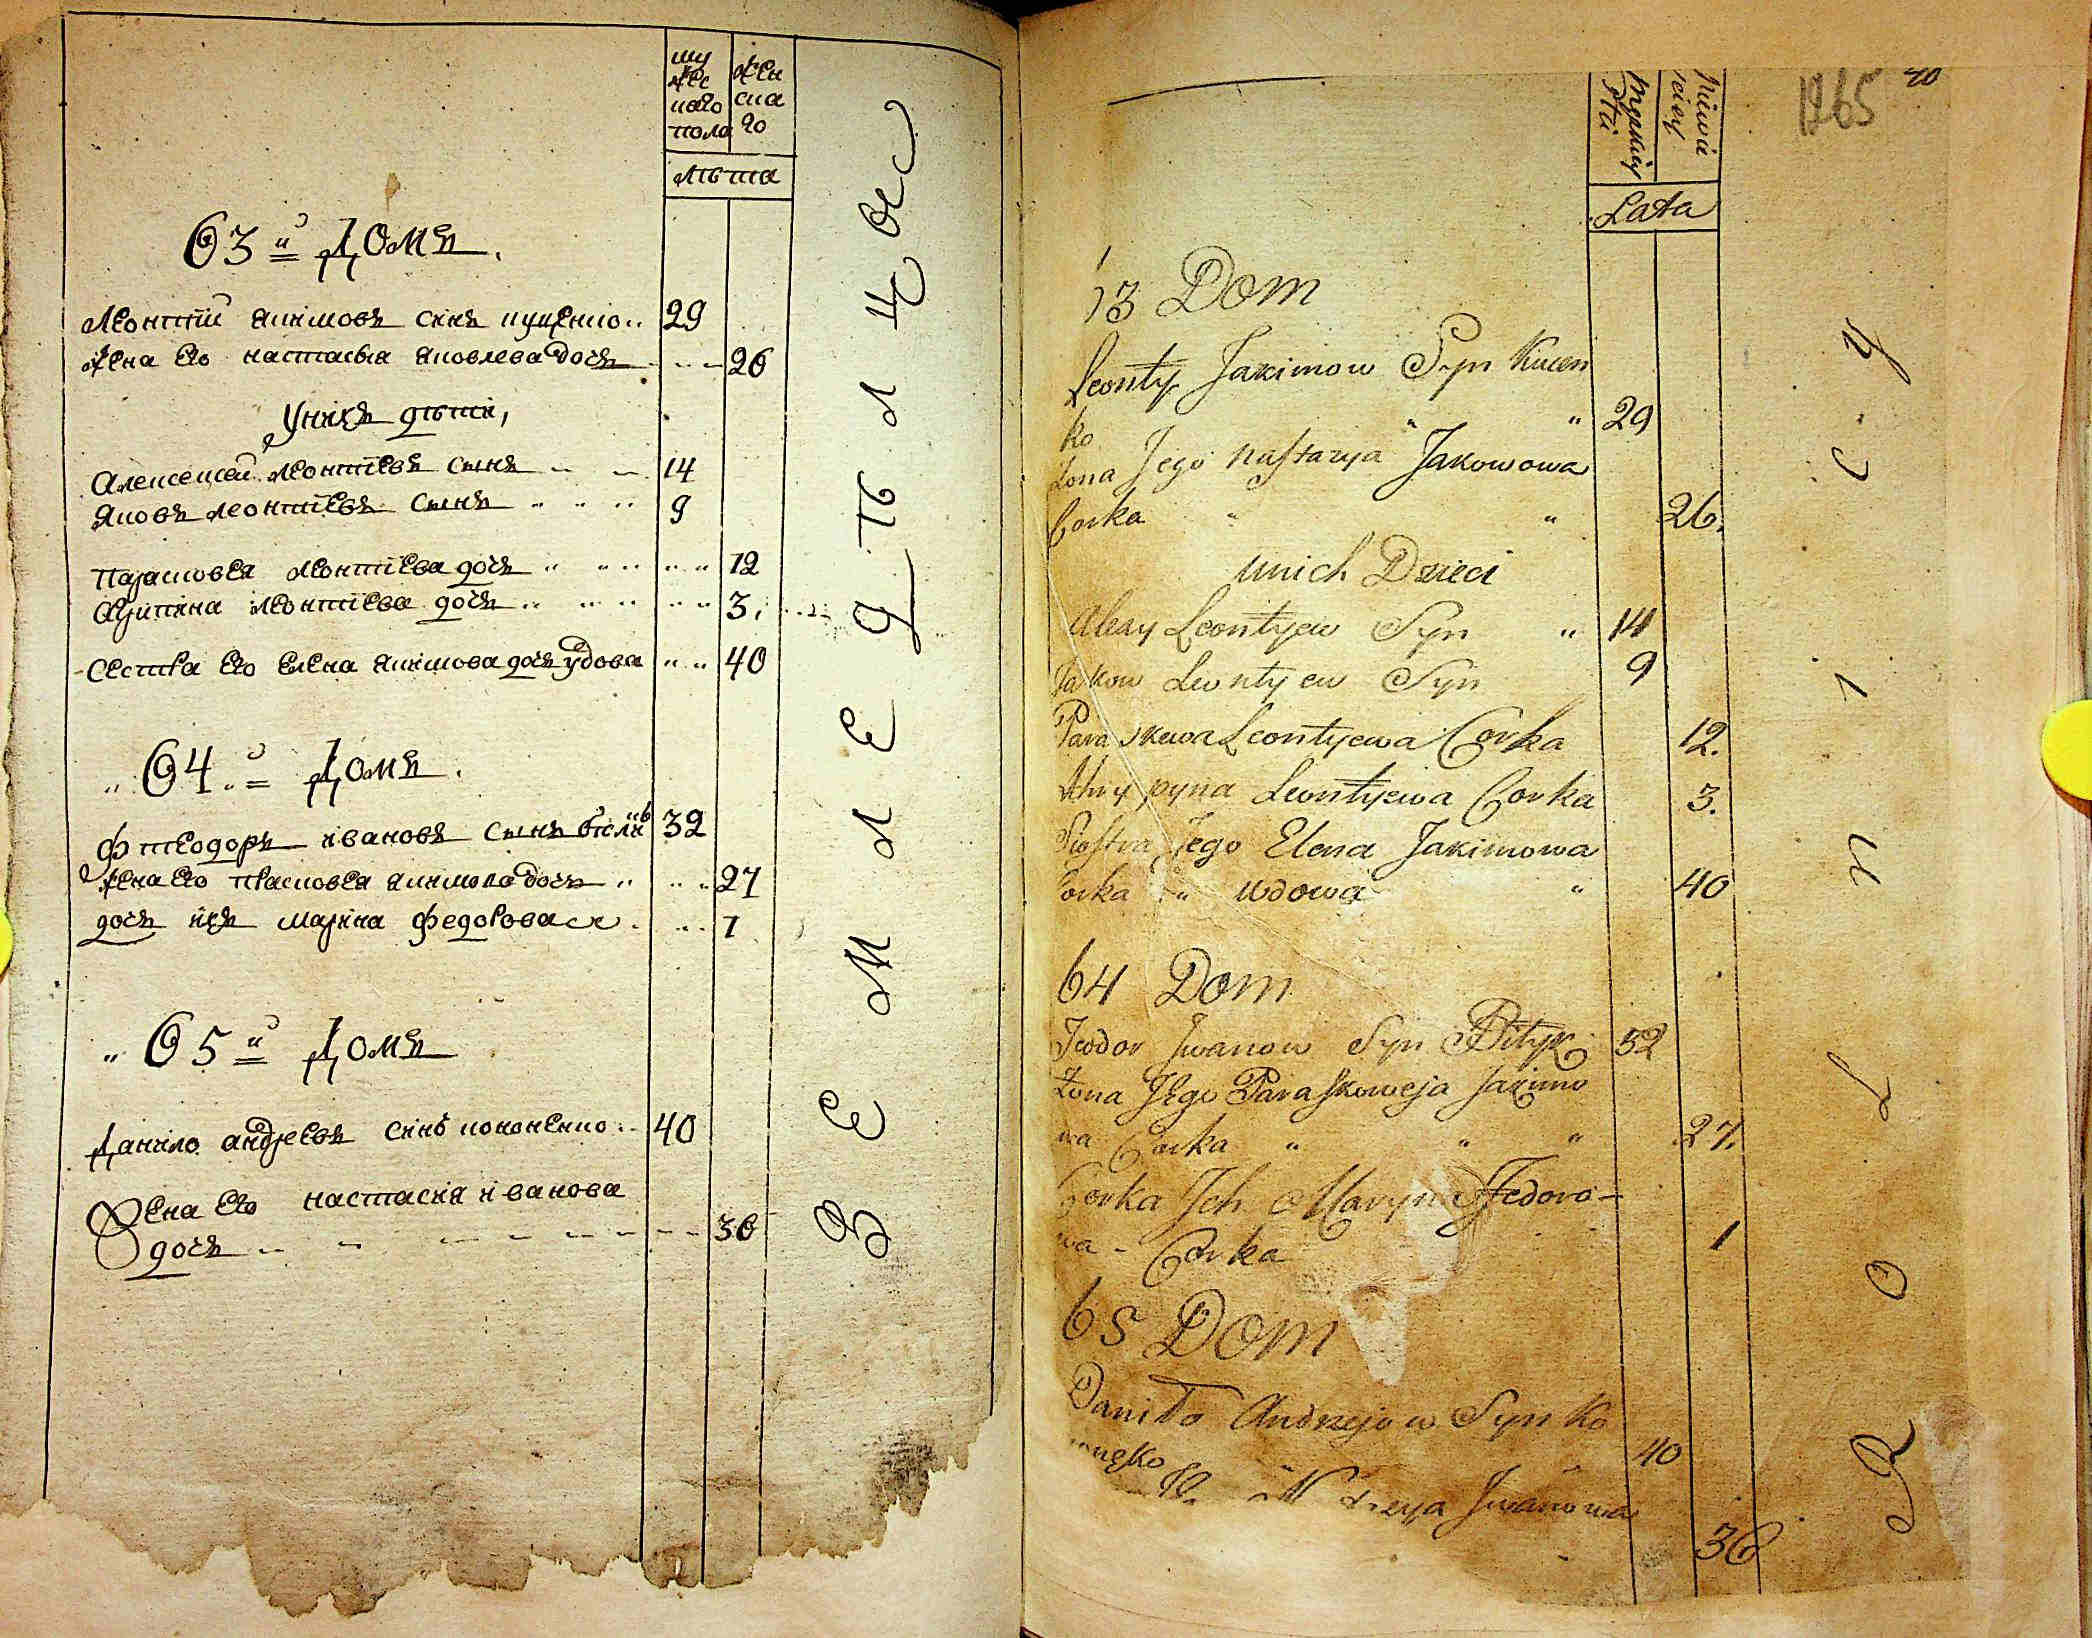 муж
ско
наго
пола
жен
ска
го
лѣта
63 й Домъ.
Леонтий якимовъ синъ куценко 29
жена его настасья яковлева дочь 26
У них дѣти,
Алексей леонтиевъ сынъ 14
яковъ леонтиевъ сынъ 9
парасковея леонтиева дочь 12
агрипина леонтиева дочь 3.
сестра его елена якимова дочь удова 40
64. й Домъ.
Фтеодоръ ивановъ сынъ 32
жена его прасковея якимова дочь 27
дочь ихъ марина федорова 1
65 й Домъ
Данило андреевъ синъ кононенко 40
жена его настасия иванова
дочь 36
ЗЕМЛЕДѢЛЦЫ
40
1265
Lata
3 Dom
Leonty Jakimow Syn Kucen
ko 29
Zona Jego Nastazya Jakowowa
Corka 26.
unich Dzieci
Alexy Leontyew Syn 14
Jakow Leontyew Syn 9
Paraskewa Leontyewa Corka 12.
Ahrypyna Leontyewa Corka 3.
Siostra Jego Elena Jakimowa
Corka Wdowa 40
64 Dom
Teodor Iwanow Syn 52
Zona Jego Paraskoweja Jakimo
wa Corka 27.
Corka Ich Maryna Fedoro-
wa - Corka 1
65 Dom
Daniło Andrzejow Syn Ko
nenko 40
Iwanowa
36
Rolnicy